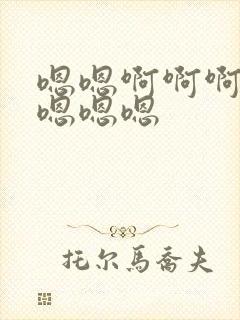 嗯嗯啊啊啊
嗯嗯嗯
托尔马乔夫